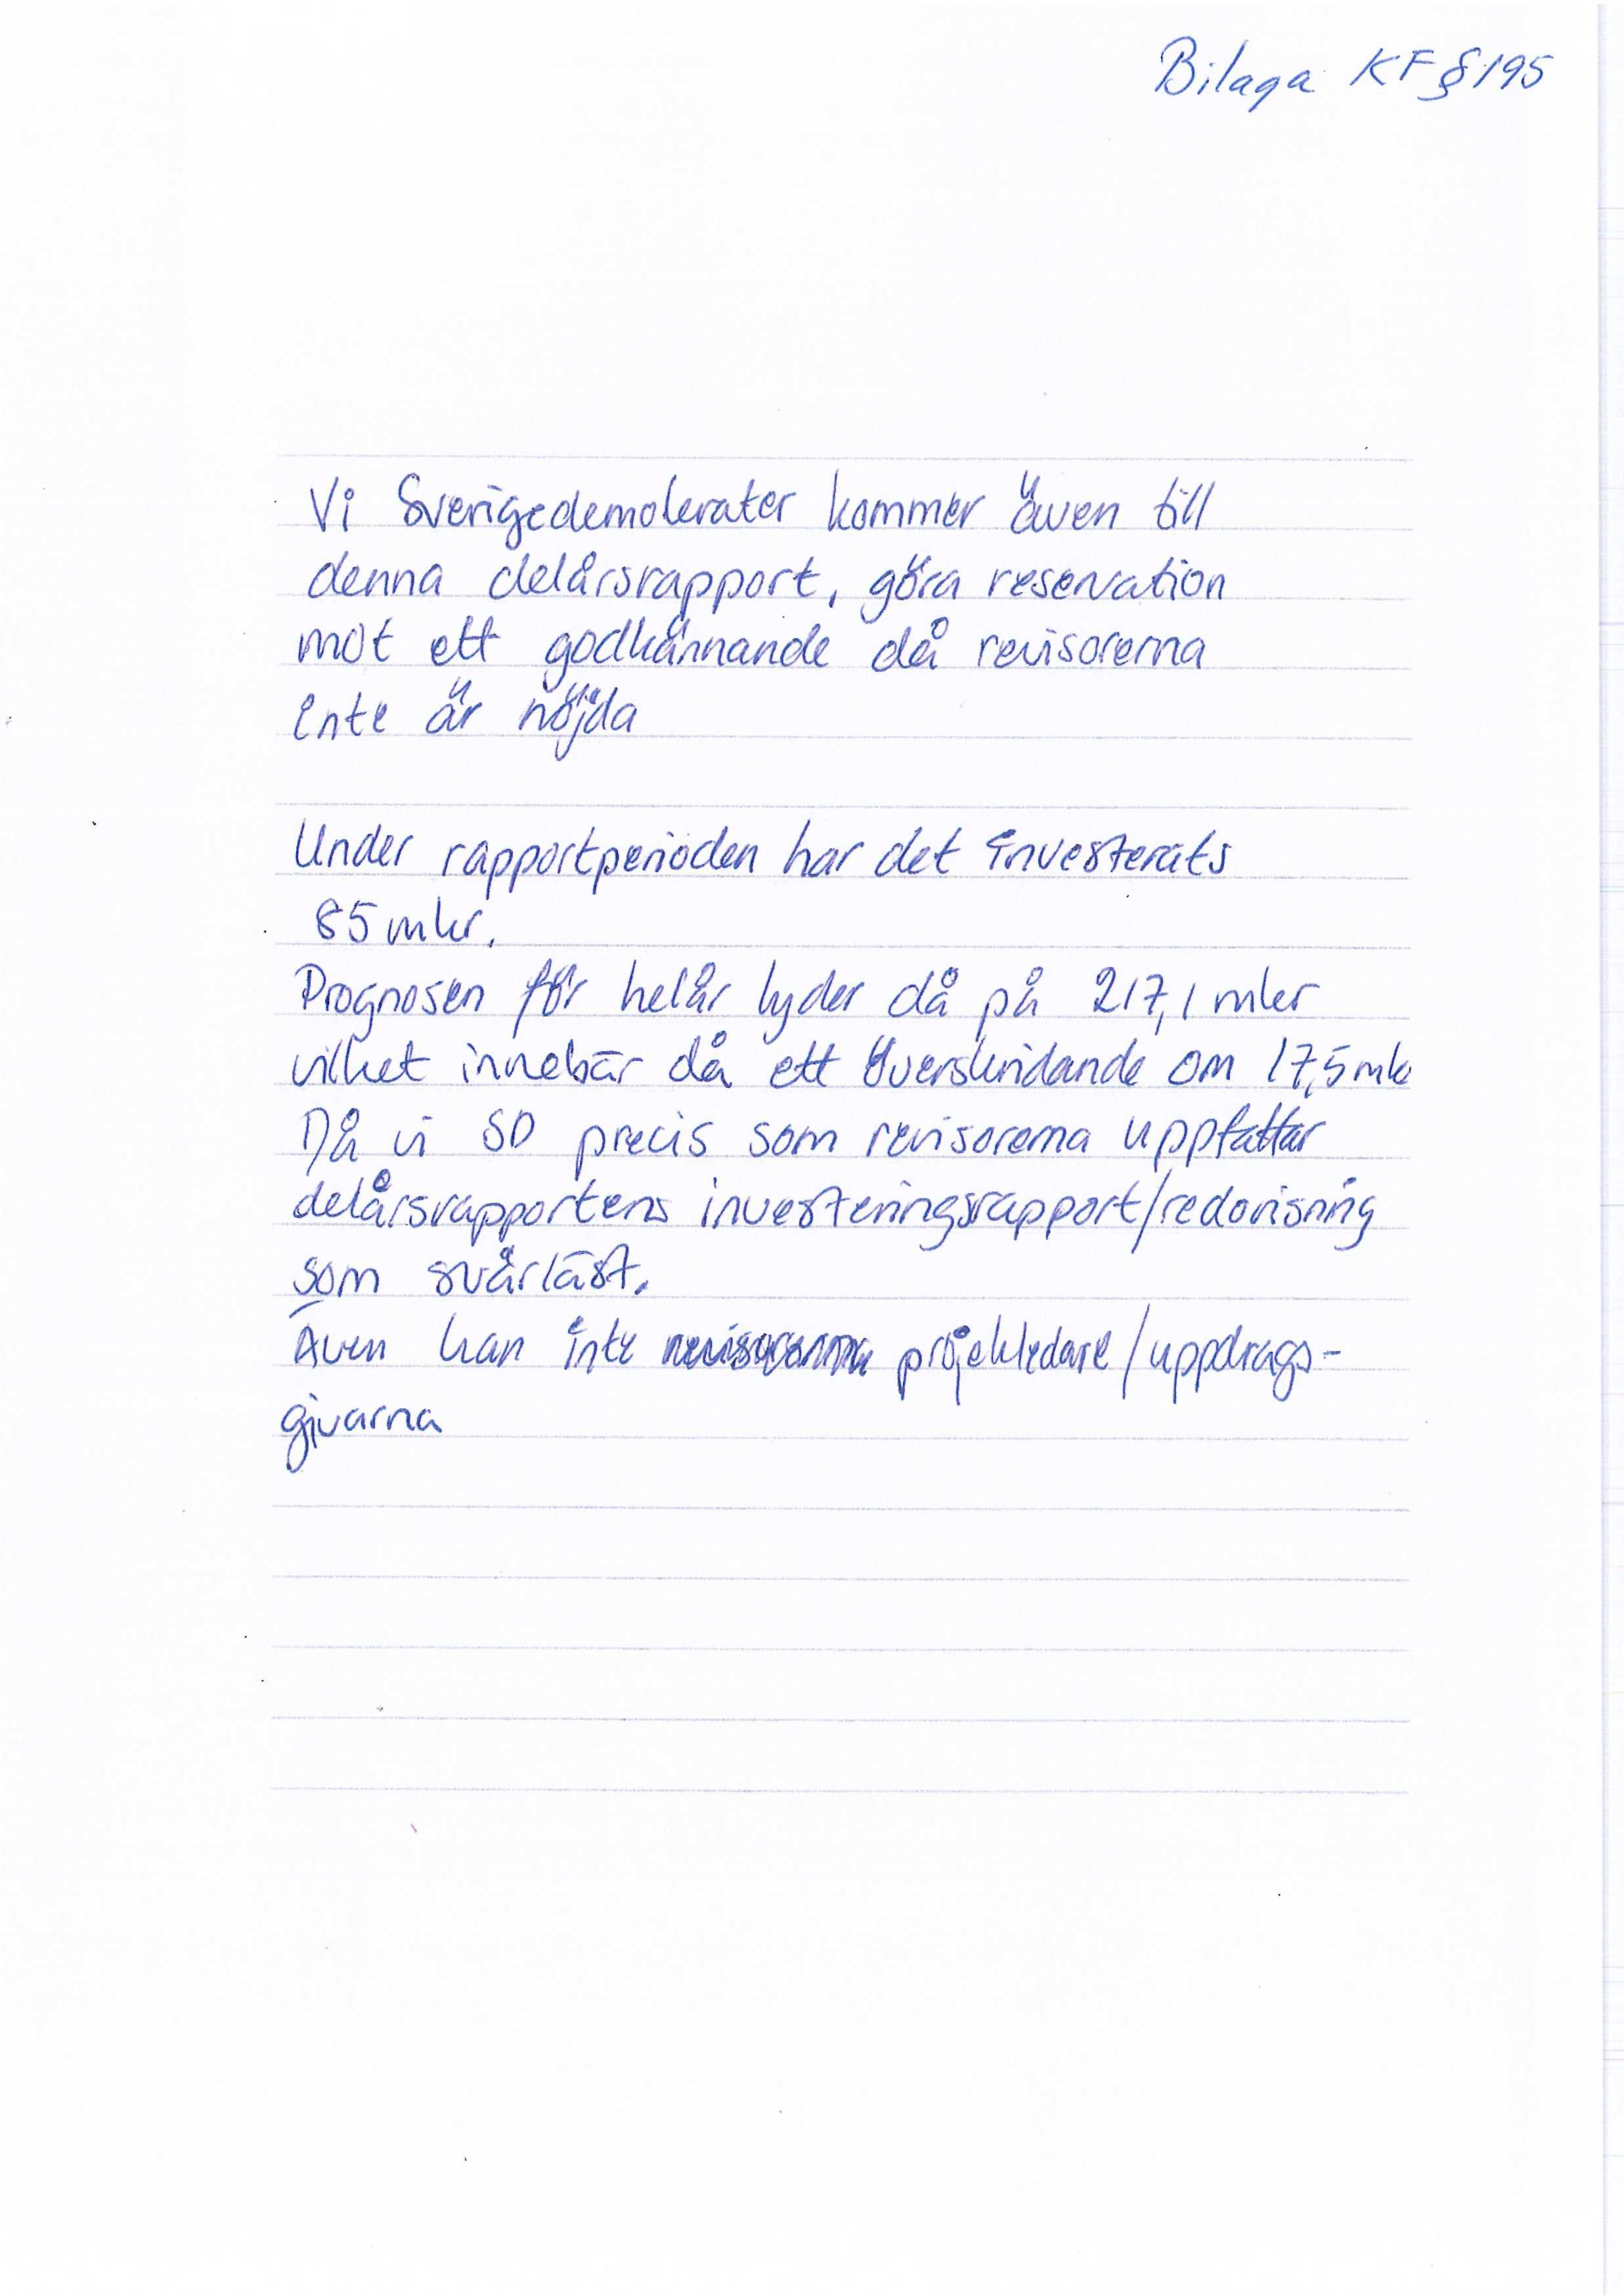 Bilaga KF § 195
Vi Sverigedemokrater kommer även till
denna delårsrapport, göra reservation
mot ett godkännande då revisorerna
inte är nöjda
Under rapportperioden har det investerats
85 mkr.
Prognosen för helår lyder då på 217,1 mkr
vilket innebär då ett överskridande om 17,5 mk
Då vi SD precis som revisorerna uppfattar
delårsrapportens investeringsrapport/redovisning
som svårläst.
Även kan inte projektledare/uppdrags-
givarna